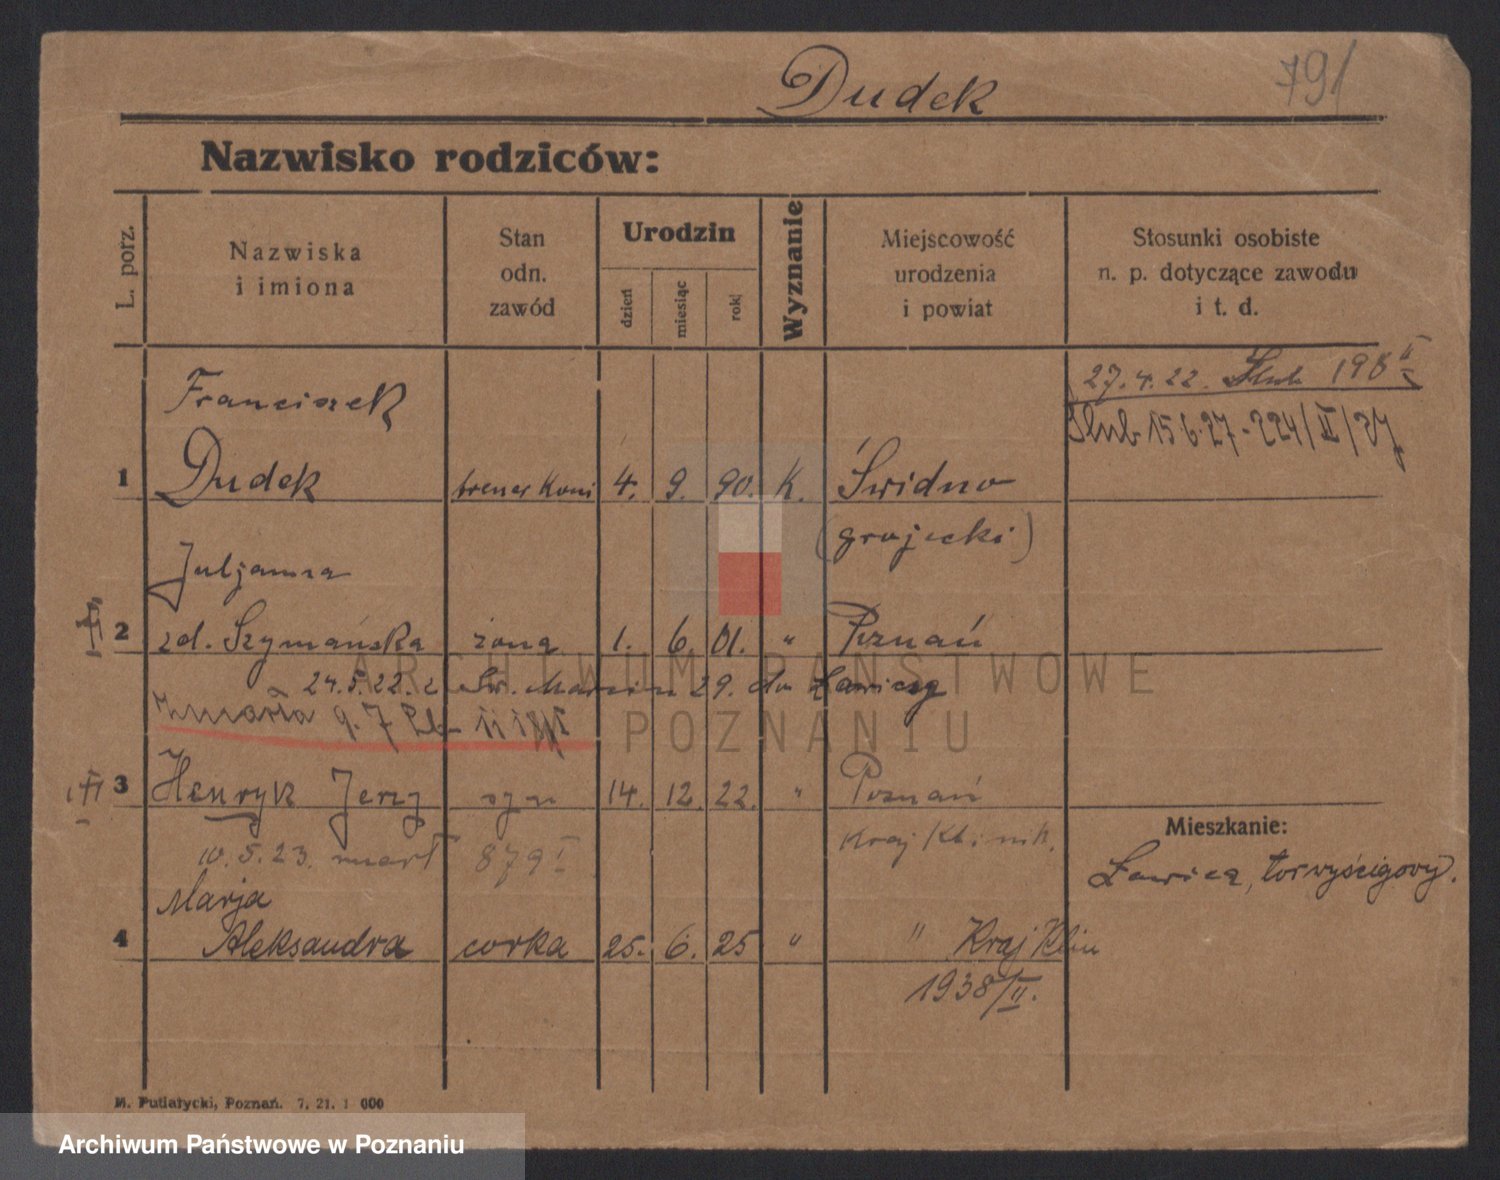 Dudek
791
Nazwisko rodziców:
L. porz.
Nazwiska
i imiona
Stan
odn.
zawód
Urodzin
dzień
miesiąc
rok
Wyznanie
Miejscowość
urodzenia
i powiat
Stosunki osobiste
n. p. dotyczące zawodu
i t. d.
27.4.22. Ślub 198 II
Ślub 15.6.27 - 224/II/27
Franciszek
1 Dudek trener koni 4. 9. 90. K. Świdno
(grojecki)
Juljanna
2 zd. Szymańska żona 1. 6. 01. " Poznań
24.5.22. z Św. Marcin 29. do Ławicy
zmarła 9.7
3 Henryk Jerzy syn 14. 12. 22. " Poznań
10.5.23. zmarł 879 I
Mieszkanie:
Ławica, tor wyścigowy.
Marja
4 Aleksandra corka 25. 6. 25 " " Kraj Klin
1938/II.
M. Putiatycki, Poznań. 7. 21. 1 000
ARCHIWUM PAŃSTWOWE
W POZNANIU
Archiwum Państwowe w Poznaniu